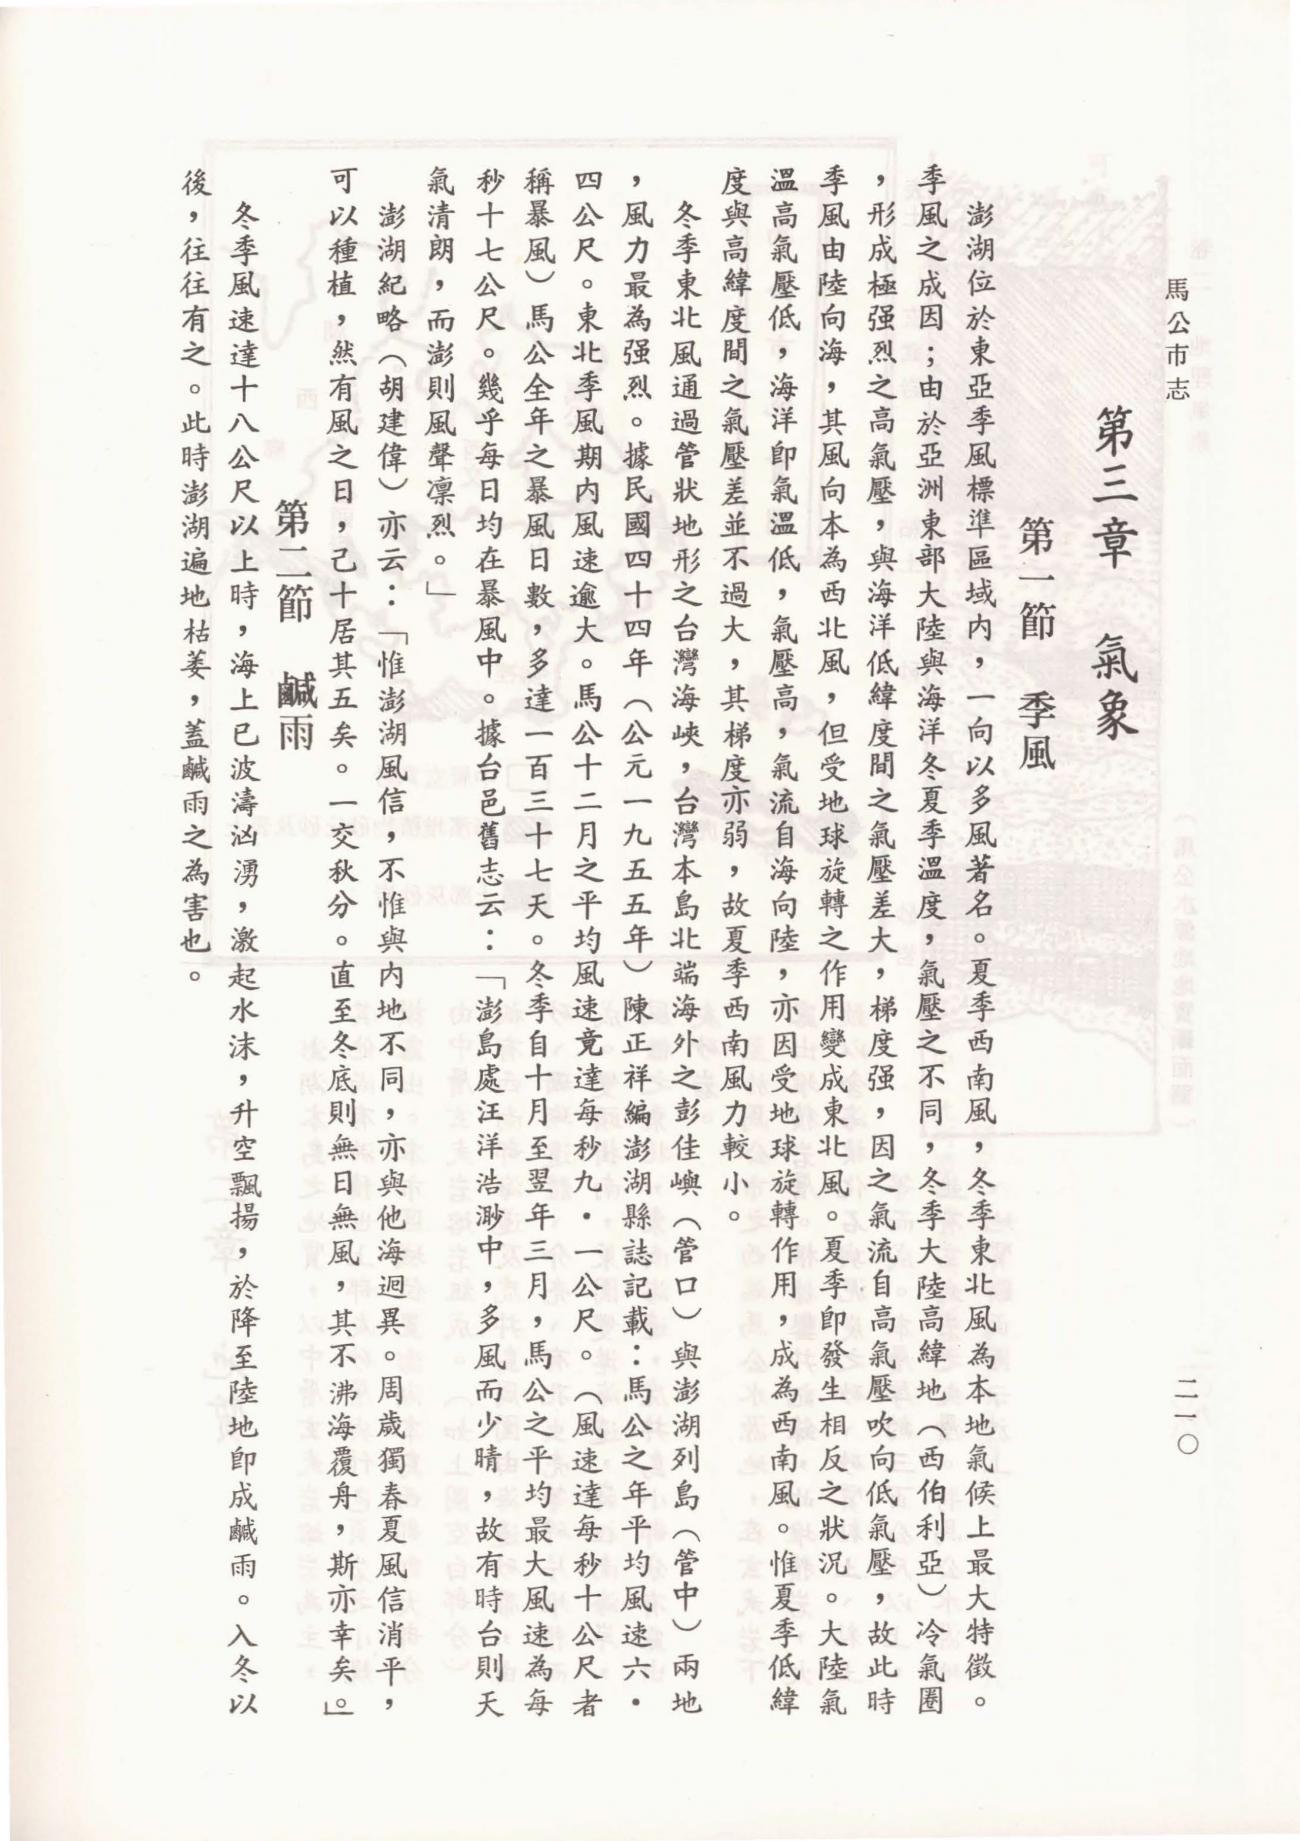 馬公市志
二一〇
第三章　氣象
第一節　季風
澎湖位於東亞季風標準區域內，一向以多風著名。夏季西南風，冬季東北風為本地氣候上最大特徵。
季風之成因；由於亞洲東部大陸與海洋冬夏季溫度，氣壓之不同，冬季大陸高緯地（西伯利亞）冷氣團
，形成極强烈之高氣壓，與海洋低緯度間之氣壓差大，梯度强，因之氣流自高氣壓吹向低氣壓，故此時
季風由陸向海，其風向本為西北風，但受地球旋轉之作用變成東北風。夏季卽發生相反之狀況。大陸氣
溫高氣壓低，海洋卽氣溫低，氣壓高，氣流自海向陸，亦因受地球旋轉作用，成為西南風。惟夏季低緯
度與高緯度間之氣壓差並不過大，其梯度亦弱，故夏季西南風力較小。
冬季東北風通過管狀地形之台灣海峽，台灣本島北端海外之彭佳嶼（管口）與澎湖列島（管中）兩地
，風力最為强烈。據民國四十四年（公元一九五五年）陳正祥編澎湖縣誌記載：馬公之年平均風速六．
四公尺。東北季風期內風速逾大。馬公十二月之平均風速竟達每秒九．一公尺。（風速達每秒十公尺者
稱暴風）馬公全年之暴風日數，多達一百三十七天。冬季自十月至翌年三月，馬公之平均最大風速為每
秒十七公尺。幾乎每日均在暴風中。據台邑舊志云：「澎島處汪洋浩渺中，多風而少晴，故有時台則天
氣清朗，而澎則風聲凛烈。」
澎湖紀略（胡建偉）亦云：「惟澎湖風信，不惟與內地不同，亦與他海迥異。周歲獨春夏風信消平，
可以種植，然有風之日，己十居其五矣。一交秋分。直至冬底則無日無風，其不沸海覆舟，斯亦幸矣。」
第二節　鹹雨
冬季風速達十八公尺以上時，海上已波濤汹湧，激起水沫，升空飄揚，於降至陸地卽成鹹雨。入冬以
後，往往有之。此時澎湖遍地枯萎，蓋鹹雨之為害也。